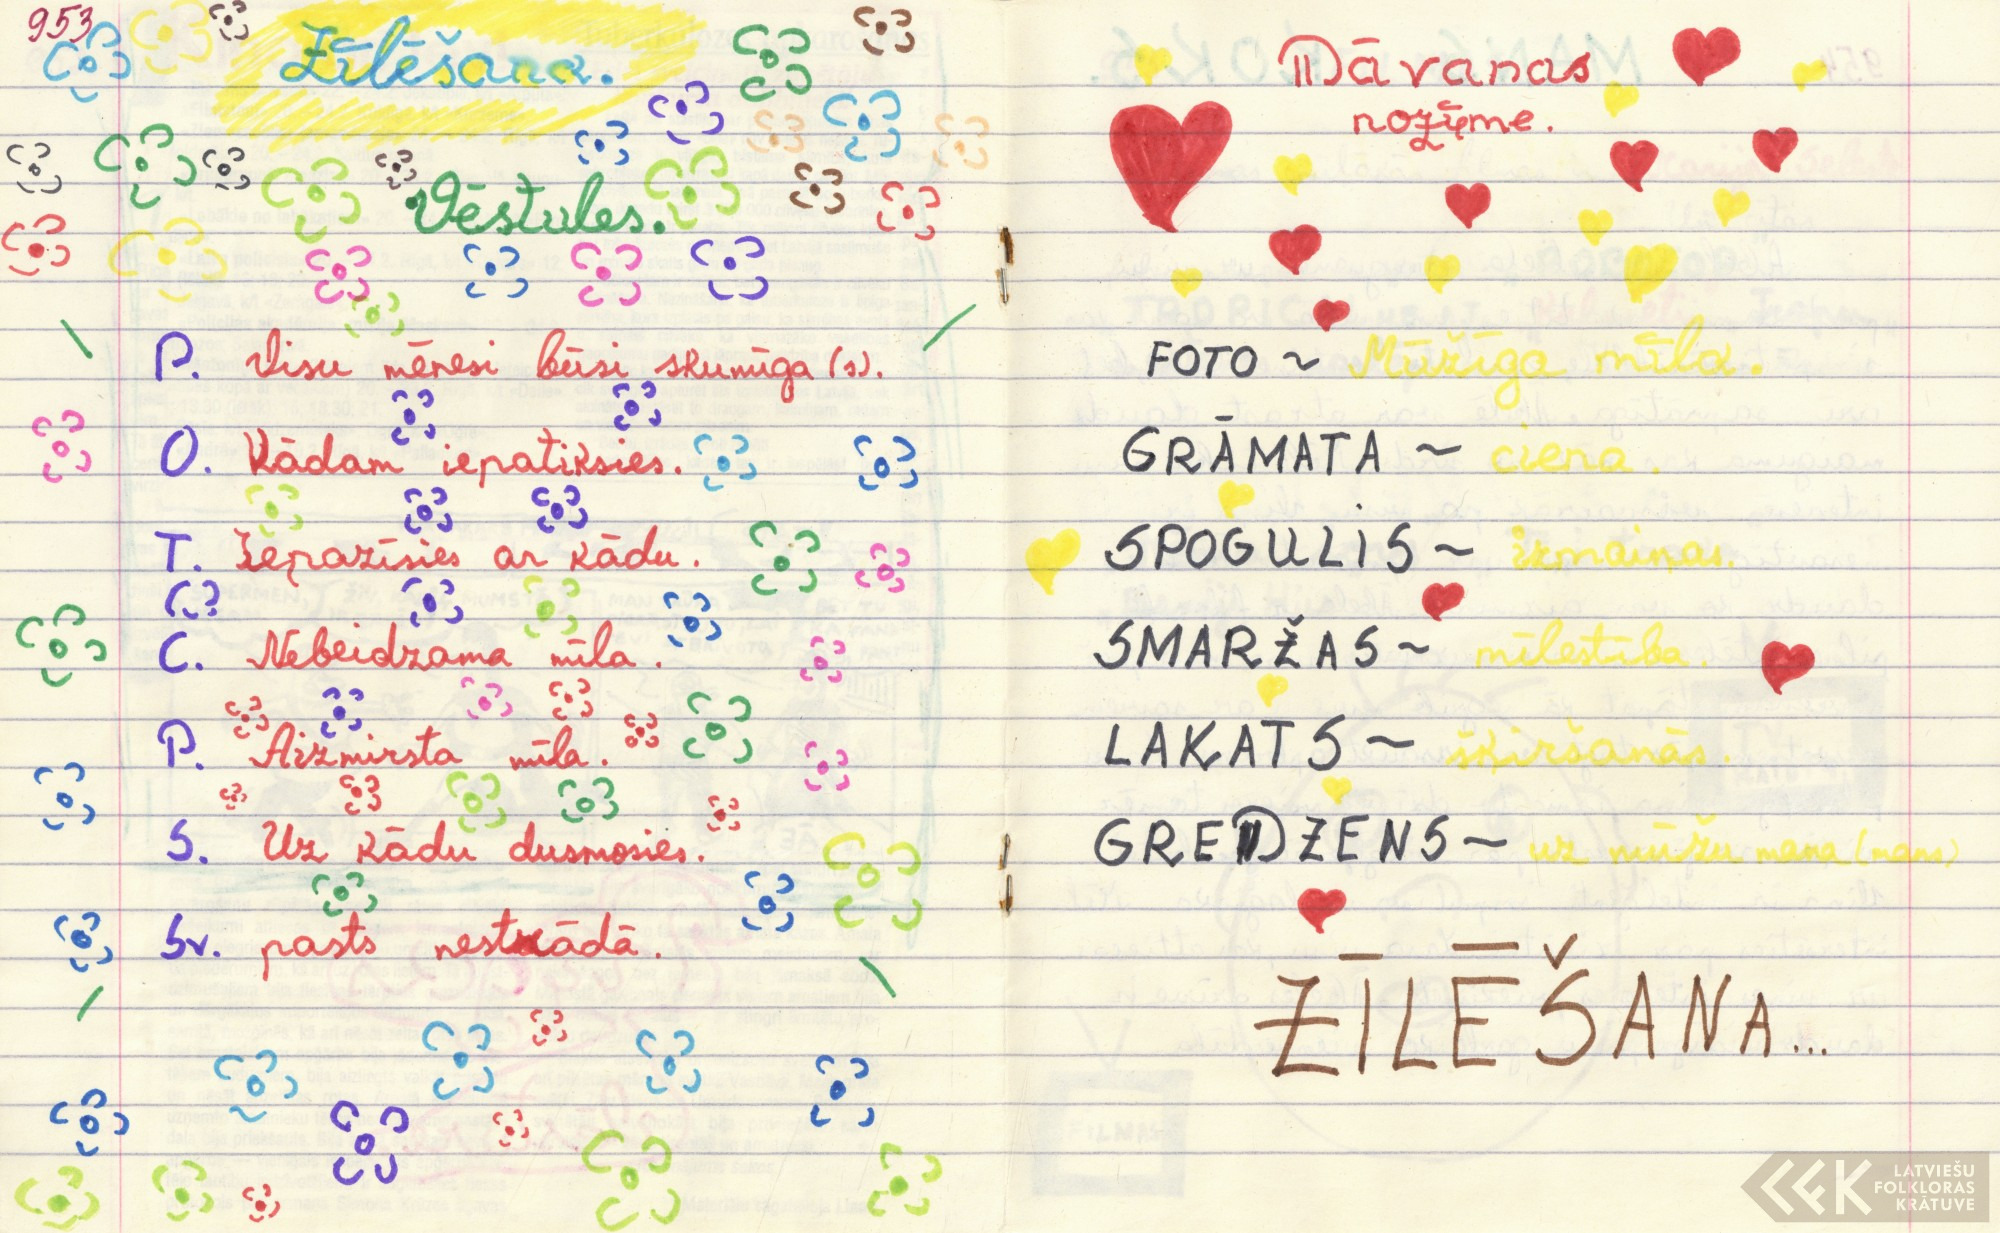 953
Zīlēšana.
Vēstules.
P. Visu mēnesi būsi skumīga (s).
O. Kādam iepatiksies.
T. Iepazīsies ar kādu.
C. Nebeidzama mīla.
P. Aizmirsta mīla.
S. Uz kādu dusmosies.
Sv. pasts nestrādā.
Dāvanas
nozīme.
FOTO ~ Mūžīga mīla.
GRĀMATA ~ ciena.
SPOGULIS ~ izmaiņas.
SMARŽAS ~ mīlestība.
LAKATS ~ šķiršanās.
GREDZENS ~ uz mūžu mana (mans)
ZĪLĒŠANA...
LATVIEŠU
FOLKLORAS
KRĀTUVE